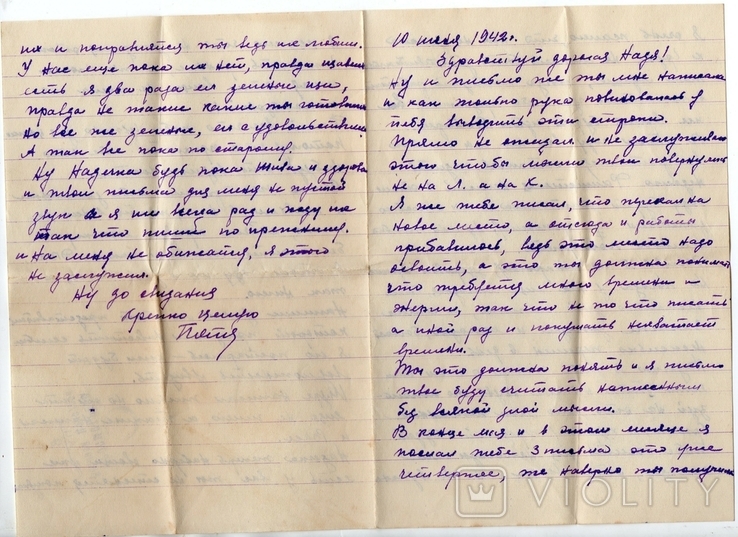 10 июня 1942 г.
Здравствуй дорогая Надя!
Ну и письмо же ты мне написала
и как только рука повиновалась у
тебя выводить эти строки.
Прямо не ожидал и не заслуживаю
этой чтобы мысли твои повернулись
не на Л. а на К.
Я же тебе писал, что приехал на
новое место, а отсюда и работы
прибавилось, ведь это место надо
освоить, а это ты должна понимать
что требуется много времени и
энергии, так что не то что писать
а иной раз и покушать нехватает
времени.
Ты это должна понять и я письмо
твое буду считать написанным
без всякой злой мысли.
В конце мая и в этом месяце я
послал тебе 3 письма это уже
четвертое, же наверно ты получила
их и поправится ты ведь их любиш.
У нас еще пока их нет, правда щавель
есть я два раза ел зеленые щи,
правда не такие какие ты готовила
Но все же зеленые, ел с удовольствием
А так все пока по старому.
Ну Надечка будь пока жива и здорова
и твои письма для меня не пустой
звук а я им всегда рад и жду их
так что пиши по прежнему.
и на меня не обижайся, я этого
не заслужил.
Ну до свидания
Крепко целую
Петя
VIOLITY